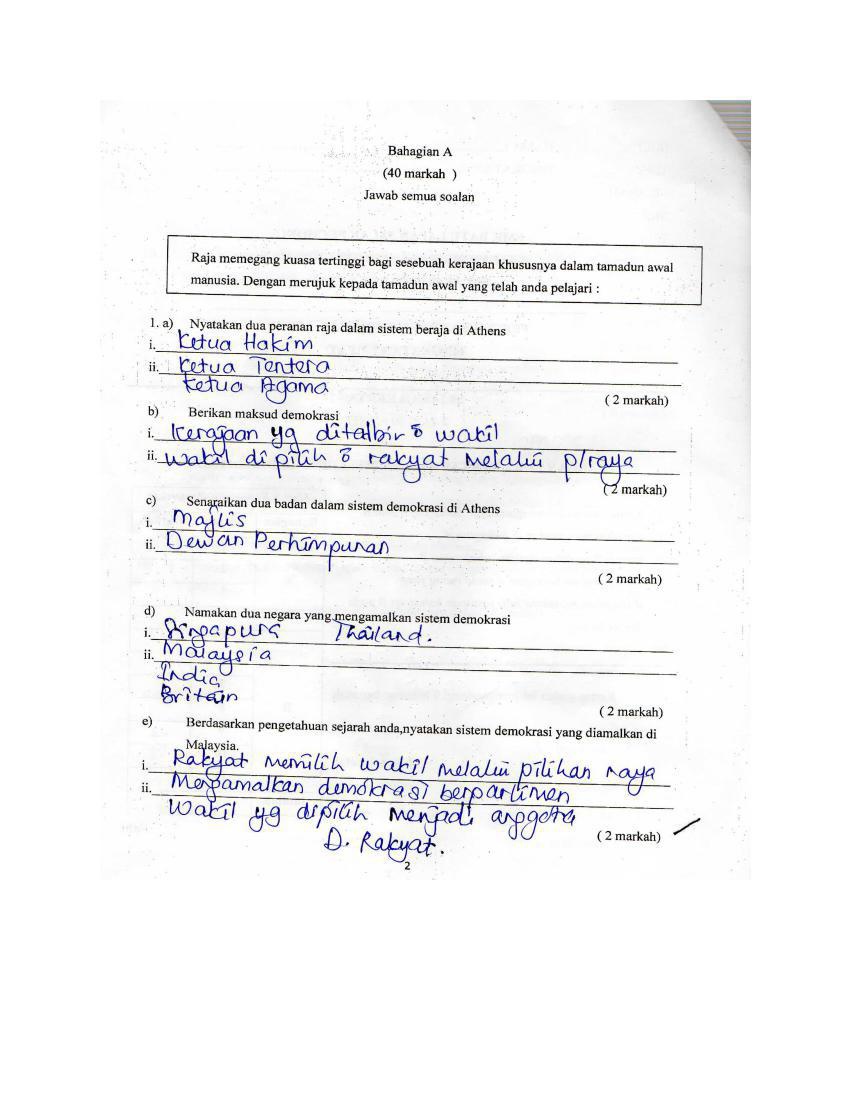 Bahagian A
(40 markah )
Jawab semua soalan
Raja memegang kuasa tertinggi bagi sesebuah kerajaan khususnya dalam tamadun awal
manusia. Dengan merujuk kepada tamadun awal yang telah anda pelajari :
1. a) Nyatakan dua peranan raja dalam sistem beraja di Athens
i. Ketua Hakim
ii. Ketua Tentera
Ketua Agama
( 2 markah)
b) Berikan maksud demokrasi
i. Kerajaan yg ditadbir wakil
ii. wakil dipilih rakyat melalui p/raya
( 2 markah)
c) Senaraikan dua badan dalam sistem demokrasi di Athens
i. Majlis
ii. Dewan Perhimpunan
( 2 markah)
d) Namakan dua negara yang mengamalkan sistem demokrasi
i. Singapura Thailand.
ii. Malaysia
India
Britain
( 2 markah)
e) Berdasarkan pengetahuan sejarah anda,nyatakan sistem demokrasi yang diamalkan di
Malaysia.
i. Rakyat memilih wakil melalui pilihan raya
ii. Mengamalkan demokrasi berparlimen
Wakil yg dipilih menjadi anggota
( 2 markah)
D. Rakyat.
2